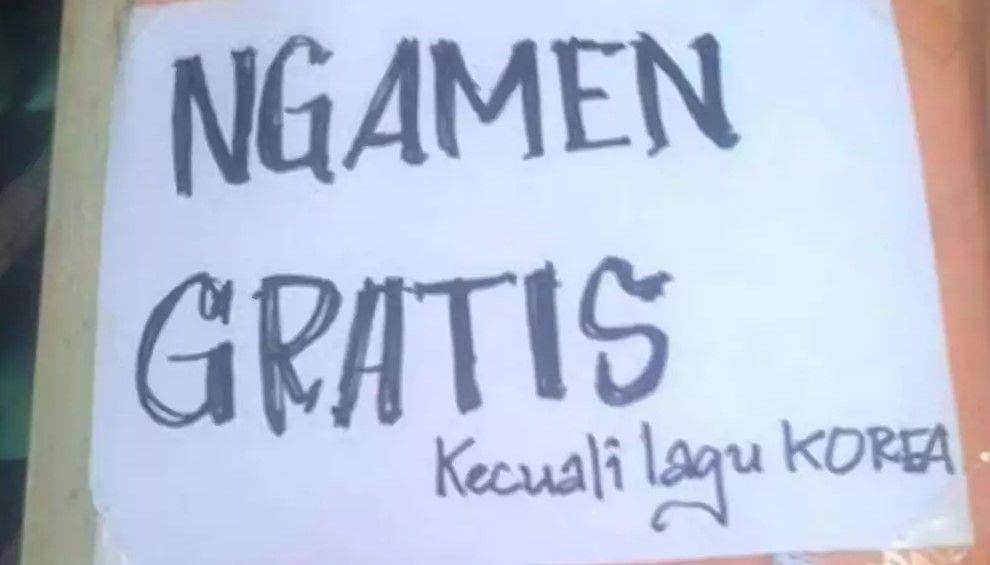 NGAMEN
GRATIS
Kecuali lagu KOREA